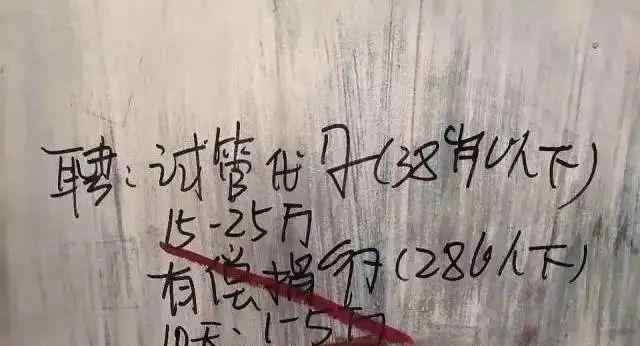 聘:试管代孕(38岁以下)
15-25万
有偿捐卵(28以下)
10天:1-5万